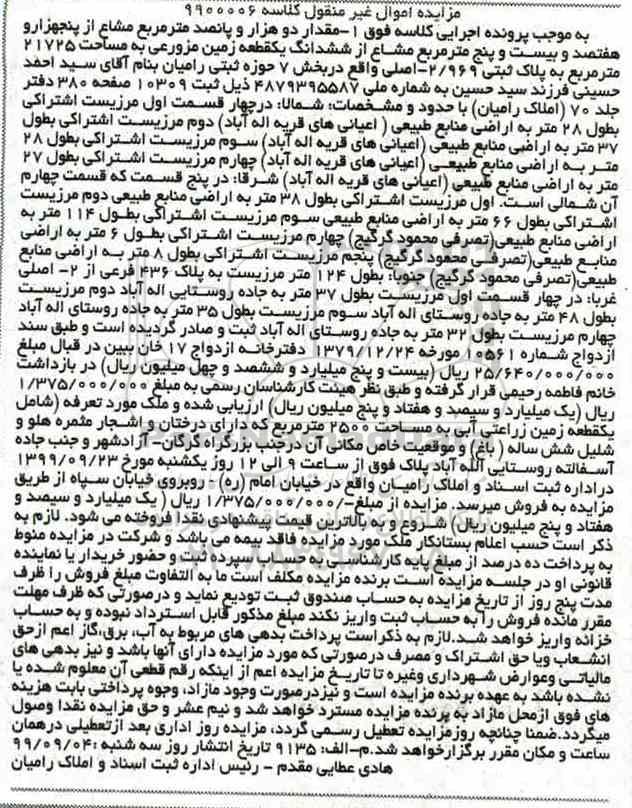 مزایده اموال غیر منقول کلاسه ۹۹۰۰۰۰۶
به موجب پرونده اجرایی کلاسه فوق ۱-مقدار دو هزار و پانصد مترمربع مشاع از پنجهزارو
هفتصد و بیست و پنج مترمربع مشاع از ششدانگ یکقطعه زمین مزورعی به مساحت ۲۱۷۲۵
مترمربع به پلاک ثبتی ۲/۹۶۹-اصلی واقع دربخش ۷ حوزه ثبتی رامیان بنام آقای سید احمد
حسینی فرزند سید حسین به شماره ملی ۴۸۷۹۳۹۵۵۸۷ ذیل ثبت ۱۰۳۰۹ صفحه ۳۸۰ دفتر
جلد ۷۰ (املاک رامیان) با حدود و مشخصات: شمالا: درچهار قسمت اول مرزیست اشتراکی
بطول ۲۸ متر به اراضی منابع طبیعی ( اعیانی های قریه اله آباد) دوم مرزیست اشتراکی بطول
۳۷ متر به اراضی منابع طبیعی (اعیانی های قریه اله آباد) سوم مرزیست اشتراکی بطول ۲۸
متر به اراضی منابع طبیعی (اعیانی های قریه اله آباد) چهارم مرزیست اشتراکی بطول ۲۷
متر به اراضی منابع طبیعی (اعیانی های قریه اله آباد) شرقا: در پنج قسمت که قسمت چهارم
آن شمالی است. اول مرزیست اشتراکی بطول ۳۸ متر به اراضی منابع طبیعی دوم مرزیست
اشتراکی بطول ۶۶ متر به اراضی منابع طبیعی سوم مرزیست اشتراکی بطول ۱۱۴ متر به
اراضی منابع طبیعی(تصرفی محمود گرگیج) چهارم مرزیست اشتراکی بطول ۶ متر به اراضی
منابع طبیعی(تصرفی محمود گرگیج) پنجم مرزیست اشتراکی بطول ۸ متر به اراضی منابع
طبیعی(تصرفی محمود گرگیج) جنوبا: بطول ۱۲۴ متر مرزیست به پلاک ۴۳۶ فرعی از ۲- اصلی
غربا: در چهار قسمت اول مرزیست بطول ۳۷ متر به جاده روستایی اله آباد دوم مرزیست
بطول ۴۸ متر به جاده روستای اله آباد سوم مرزیست بطول ۳۵ متر به جاده روستای اله آباد
چهارم مرزیست بطول ۳۲ متر به جاده روستای اله آباد ثبت و صادر گردیده است و طبق سند
ازدواج شماره ۱۰۵۶۱ مورخه ۱۳۷۹/۱۲/۲۴ دفترخانه ازدواج ۱۷ خان ببین در قبال مبلغ
۲۵/۶۴۰/۰۰۰/۰۰۰ ریال (بیست و پنج میلیارد و ششصد و چهل میلیون ریال) در بازداشت
خانم فاطمه رحیمی قرار گرفته و طبق نظر هیئت کارشناسان رسمی به مبلغ ۱/۳۷۵/۰۰۰/۰۰۰
ریال (یک میلیارد و سیصد و هفتاد و پنج میلیون ریال) ارزیابی شده و ملک مورد تعرفه (شامل
یکقطعه زمین زراعتی آبی به مساحت ۲۵۰۰ مترمربع که دارای درختان و اشجار مثمره هلو و
شلیل شش ساله ( باغ) و موقعیت خاص مکانی آن درجنب بزرگراه گرگان- آزادشهر و جنب جاده
آسفالته روستایی الله آباد پلاک فوق از ساعت ۹ الی ۱۲ روز یکشنبه مورخ ۱۳۹۹/۰۹/۲۳
دراداره ثبت اسناد و املاک رامیان واقع در خیابان امام (ره) - روبروی خیابان سپاه از طریق
مزایده به فروش میرسد. مزایده از مبلغ- ۱/۳۷۵/۰۰۰/۰۰۰ ریال ( یک میلیارد و سیصد و
هفتاد و پنج میلیون ریال) شروع و به بالاترین قیمت پیشنهادی نقدا فروخته می شود. لازم به
ذکر است حسب اعلام بستانکار ملک مورد مزایده فاقد بیمه می باشد و شرکت در مزایده منوط
به پرداخت ده درصد از مبلغ پایه کارشناسی به حساب سپرده ثبت و حضور خریدار یا نماینده
قانونی او در جلسه مزایده است برنده مزایده مکلف است ما به التفاوت مبلغ فروش را ظرف
مدت پنج روز از تاریخ مزایده به حساب صندوق ثبت تودیع نماید و درصورتی که ظرف مهلت
مقرر مانده فروش را به حساب ثبت واریز نکند مبلغ مذکور قابل استرداد نبوده و به حساب
خزانه واریز خواهد شد.لازم به ذکراست پرداخت بدهی های مربوط به آب، برق،گاز اعم ازحق
انشعاب ویا حق اشتراک و مصرف درصورتی که مورد مزایده دارای آنها باشد و نیز بدهی های
مالیاتی وعوارض شهرداری وغیره تا تاریخ مزایده اعم از اینکه رقم قطعی آن معلوم شده یا
نشده باشد به عهده برنده مزایده است و نیزدرصورت وجود مازاد، وجوه پرداختی بابت هزینه
های فوق ازمحل مازاد به برنده مزایده مسترد خواهد شد و نیم عشر و حق مزایده نقدا وصول
میگردد.ضمنا چنانچه روزمزایده تعطیل رسمی گردد، مزایده روز اداری بعد ازتعطیلی درهمان
ساعت و مکان مقرر برگزارخواهد شد.م-الف: ۹۱۳۵ تاریخ انتشار روز سه شنبه :۹۹/۰۹/۰۴
هادی عطایی مقدم - رئیس اداره ثبت اسناد و املاک رامیان